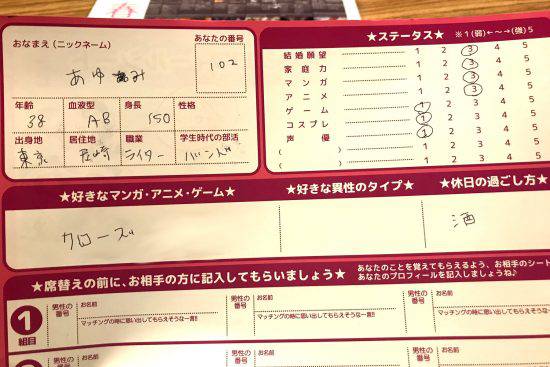 おなまえ（ニックネーム）
あなたの番号
あゆみ
102
年齢 血液型 身長 性格
38 AB 150
出身地 居住地 職業 学生時代の部活
東京 ライター バンド
★ステータス★ ※1(弱)←～→(強)5
結婚願望 1 2 3 4 5
家庭力 1 2 3 4 5
マンガ 1 2 3 4 5
アニメ 1 2 3 4 5
ゲーム 1 2 3 4 5
コスプレ 1 2 3 4 5
声優 1 2 3 4 5
( ) 1 2 3 4 5
( ) 1 2 3 4 5
★好きなマンガ・アニメ・ゲーム★
クローズ
★好きな異性のタイプ★
★休日の過ごし方★
酒
★席替えの前に、お相手の方に記入してもらいましょう★
あなたのことを覚えてもらえるよう、お相手のシート
あなたのプロフィールを記入しましょうね♪
1
組目
男性の番号 お名前
マッチングの時に思い出してもらえそうな一言!!
男性の番号 お名前
マッチングの時に思い出してもらえそうな一言!!
男性の番号 お名前
マッチングの時に思い出してもらえそうな一言!!
男性の番号 お名前
男性の番号 お名前
男性の番号 お名前